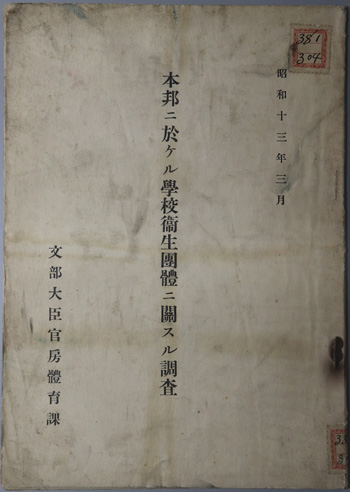 昭和十三年三月
本邦ニ於ケル學校衞生團體ニ關スル調査
文部大臣官房體育課
381
304